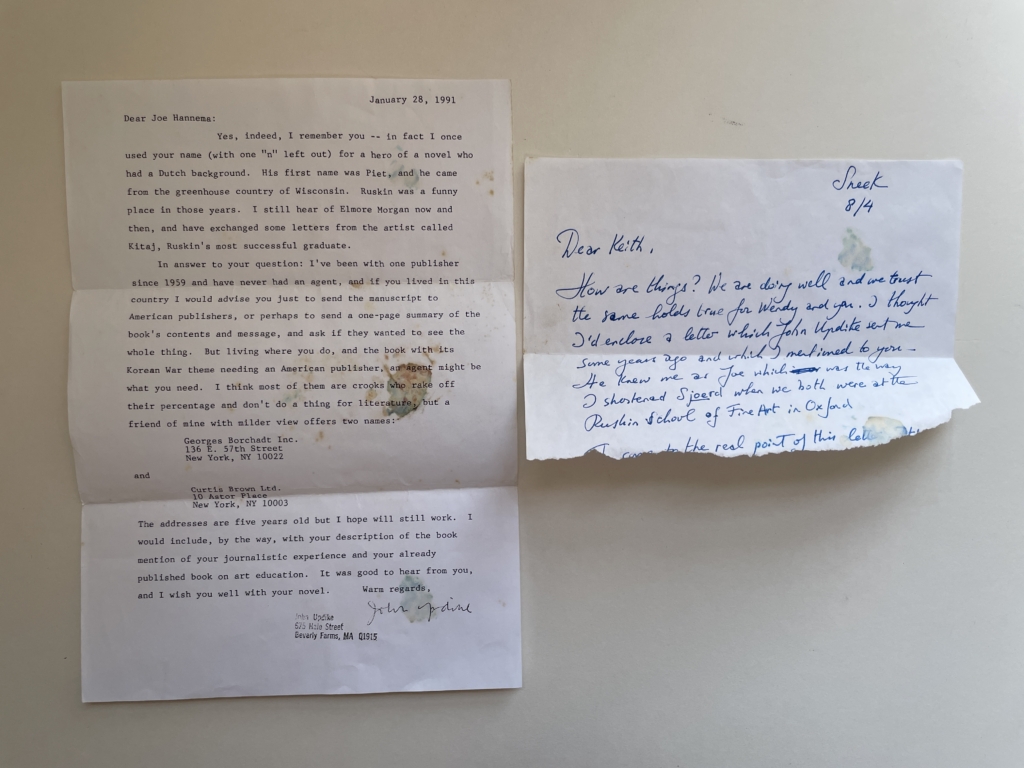 January 28, 1991
Dear Joe Hannema:
Yes, indeed, I remember you -- in fact I once
used your name (with one "n" left out) for a hero of a novel who
had a Dutch background. His first name was Piet, and he came
from the greenhouse country of Wisconsin. Ruskin was a funny
place in those years. I still hear of Elmore Morgan now and
then, and have exchanged some letters from the artist called
Kitaj, Ruskin's most successful graduate.
In answer to your question: I've been with one publisher
since 1959 and have never had an agent, and if you lived in this
country I would advise you just to send the manuscript to
American publishers, or perhaps to send a one-page summary of the
book's contents and message, and ask if they wanted to see the
whole thing. But living where you do, and the book with its
Korean War theme needing an American publisher, an agent might be
what you need. I think most of them are crooks who rake off
their percentage and don't do a thing for literature, but a
friend of mine with milder view offers two names:
Georges Borchadt Inc.
136 E. 57th Street
New York, NY 10022
and
Curtis Brown Ltd.
10 Astor Place
New York, NY 10003
The addresses are five years old but I hope will still work. I
would include, by the way, with your description of the book
mention of your journalistic experience and your already
published book on art education. It was good to hear from you,
and I wish you well with your novel. Warm regards,
John Updike
John Updike
675 Hale Street
Beverly Farms, MA 01915
Sneek
8/4
Dear Keith,
How are things? We are doing well and we trust
the same holds true for Wendy and you. I thought
I'd enclose a letter which John Updike sent me
some years ago and which I mentioned to you –
He knew me as Joe which was the way
I shortened Sjoerd when we both were at the
Ruskin School of Fine Art in Oxford
I come to the real point of this letter